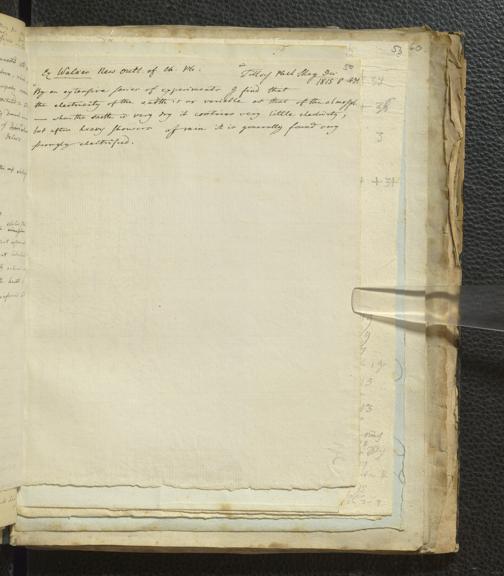 53 60
50
Ez Walker New Outl. of Ch. Ph. Tilloch Phil Mag. Dec 1815 P
By an extensive series of experiments I find that
the electricity of the earth is as variable as that of the atmosph
— when the earth is very dry it contains very little electricity,
but after heavy showers of rain it is generally found very
strongly electrified.
+ 34
3
+ 34
19
13
13